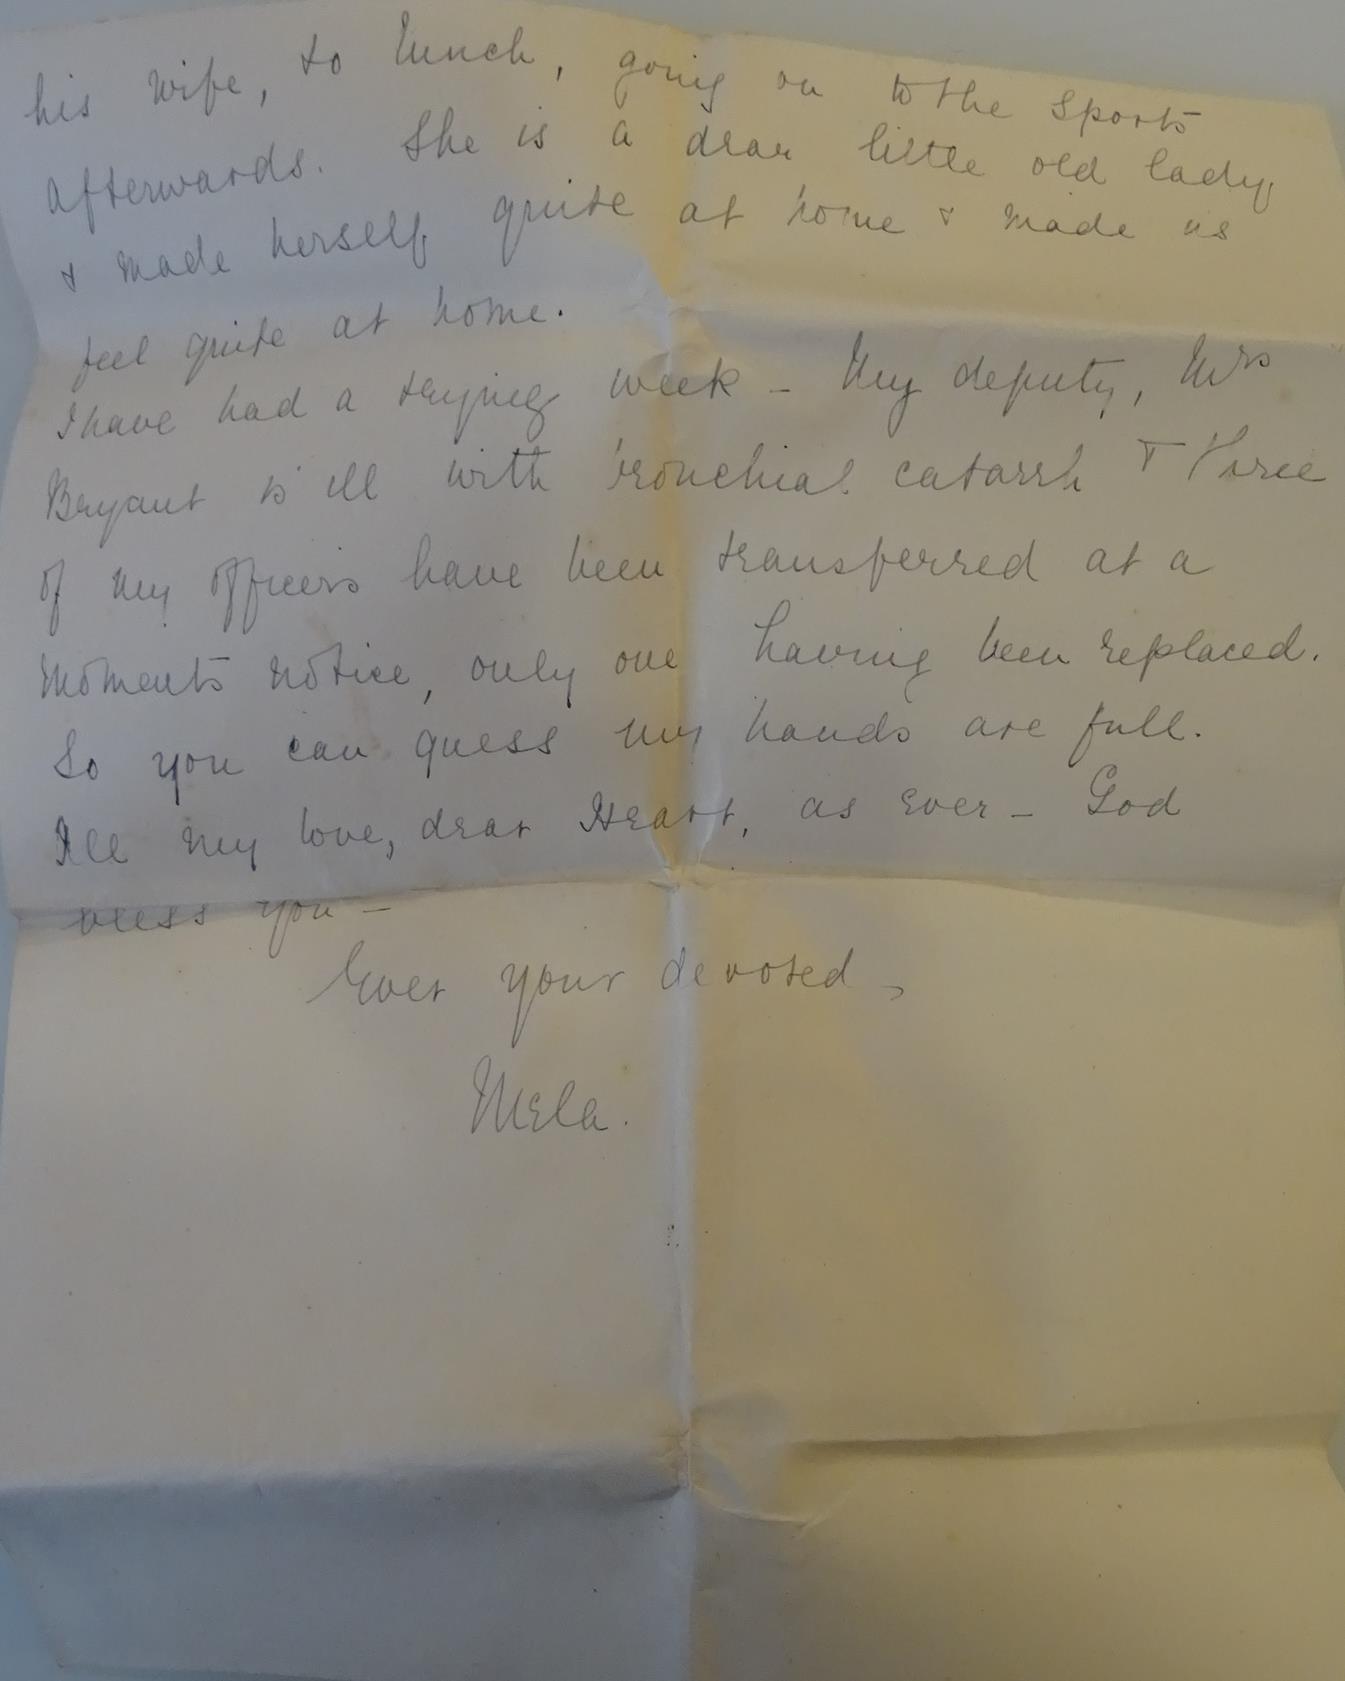 his wife, to lunch, going on to the Sports
afterwards. She is a dear little old lady,
& made herself quite at home & made us
feel quite at home.
I have had a trying week - My deputy, Mrs
Bryant is ill with bronchial catarrh & three
of my officers have been transferred at a
moments notice, only one having been replaced.
So you can guess my hands are full.
All my love, dear Heart, as ever - God
bless you -
Ever your devoted,
Mela.